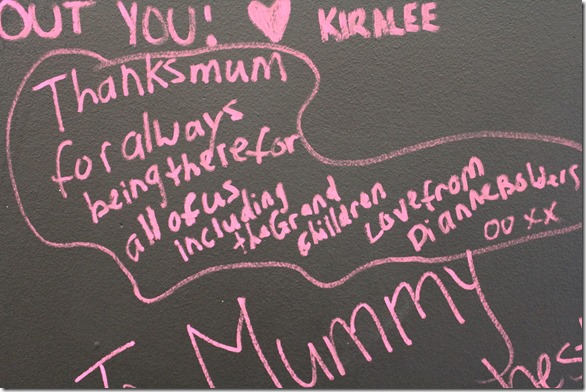 OUT YOU! ♥ KIRALEE
Thanks mum
for always
being there for
all of us
including
the Grand
children
Love from
Dianne Bolders
oo xx
Mummy